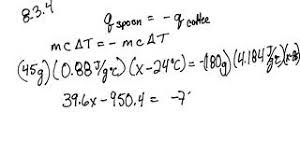 8.3.4
q spoon = - q coffee
mcΔT = - mcΔT
(45g)(0.88 J/g°C)(x-24°C) = -(180g)(4.184 J/g°C)
39.6x - 950.4 = -7